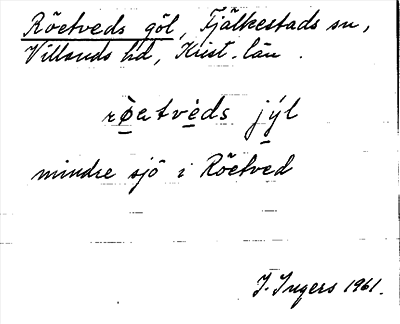 Röetveds göl, Fjälkestads sn,
Villands hd, Krist. län.
røatvèds jýl
mindre sjö i Röetved
I. Ingers 1961.